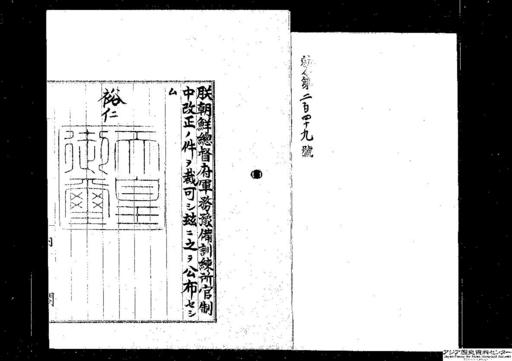 勅令第二百四十九號
朕朝鮮總督府軍務豫備訓練所官制
中改正ノ件ヲ裁可シ玆ニ之ヲ公布セシ
ム
裕仁
天皇
御璽
内閣
アジア歴史資料センター
Japan Center for Asian Historical Records